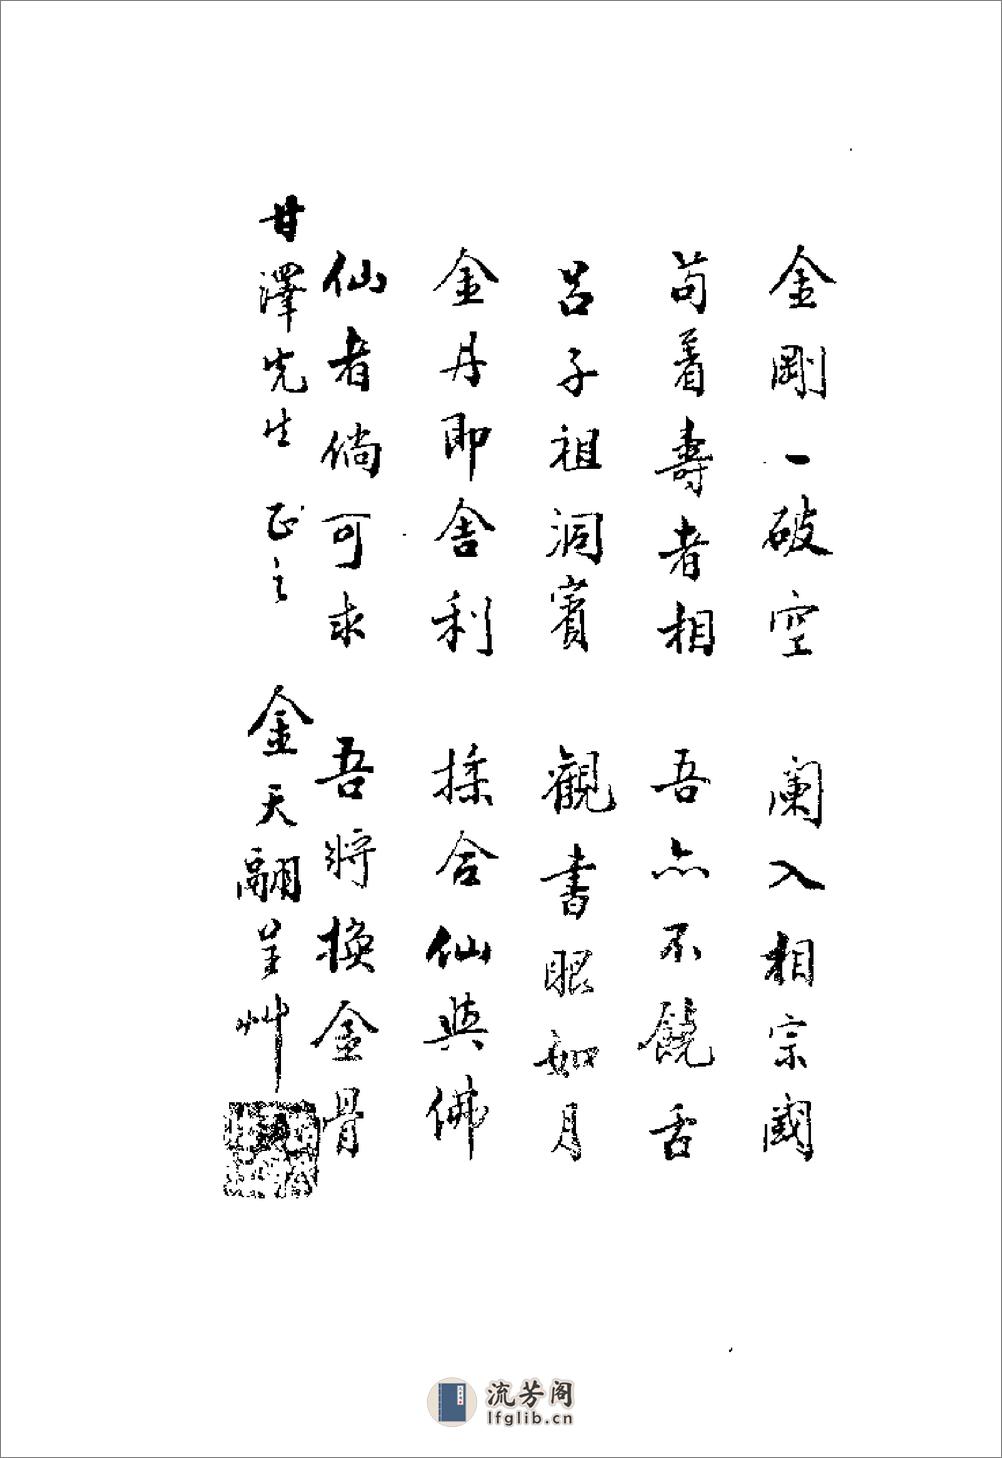 金剛一破空　闌入相宗國
苟着壽者相　吾亦不饒舌
呂子祖洞賓　觀書眼如月
金丹即舍利　揉合仙與佛
仙者倘可求　吾將換金骨
甘澤先生正之　金天翮呈艸
流芳阁
lfglib.cn